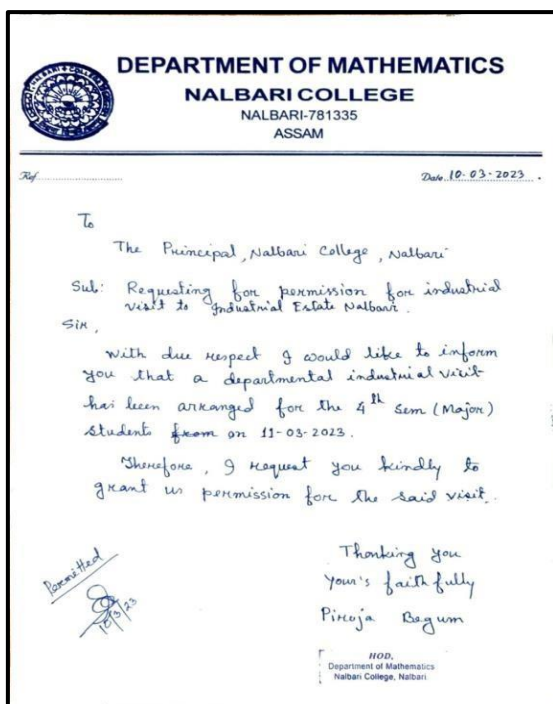 DEPARTMENT OF MATHEMATICS
NALBARI COLLEGE
NALBARI-781335
ASSAM
Ref.
Date 10-03-2023
To
The Principal, Nalbari College, Nalbari
Sub: Requesting for permission for industrial
visit to Industrial Estate Nalbari.
Sir,
With due respect I would like to inform
you that a departmental industrial visit
has been arranged for the 4th Sem (Major)
students from on 11-03-2023.
Therefore, I request you kindly to
grant us permission for the said visit.
Thanking you
Your's faithfully
Piroja Begum
Permitted
10/3/23
HOD,
Department of Mathematics
Nalbari College, Nalbari